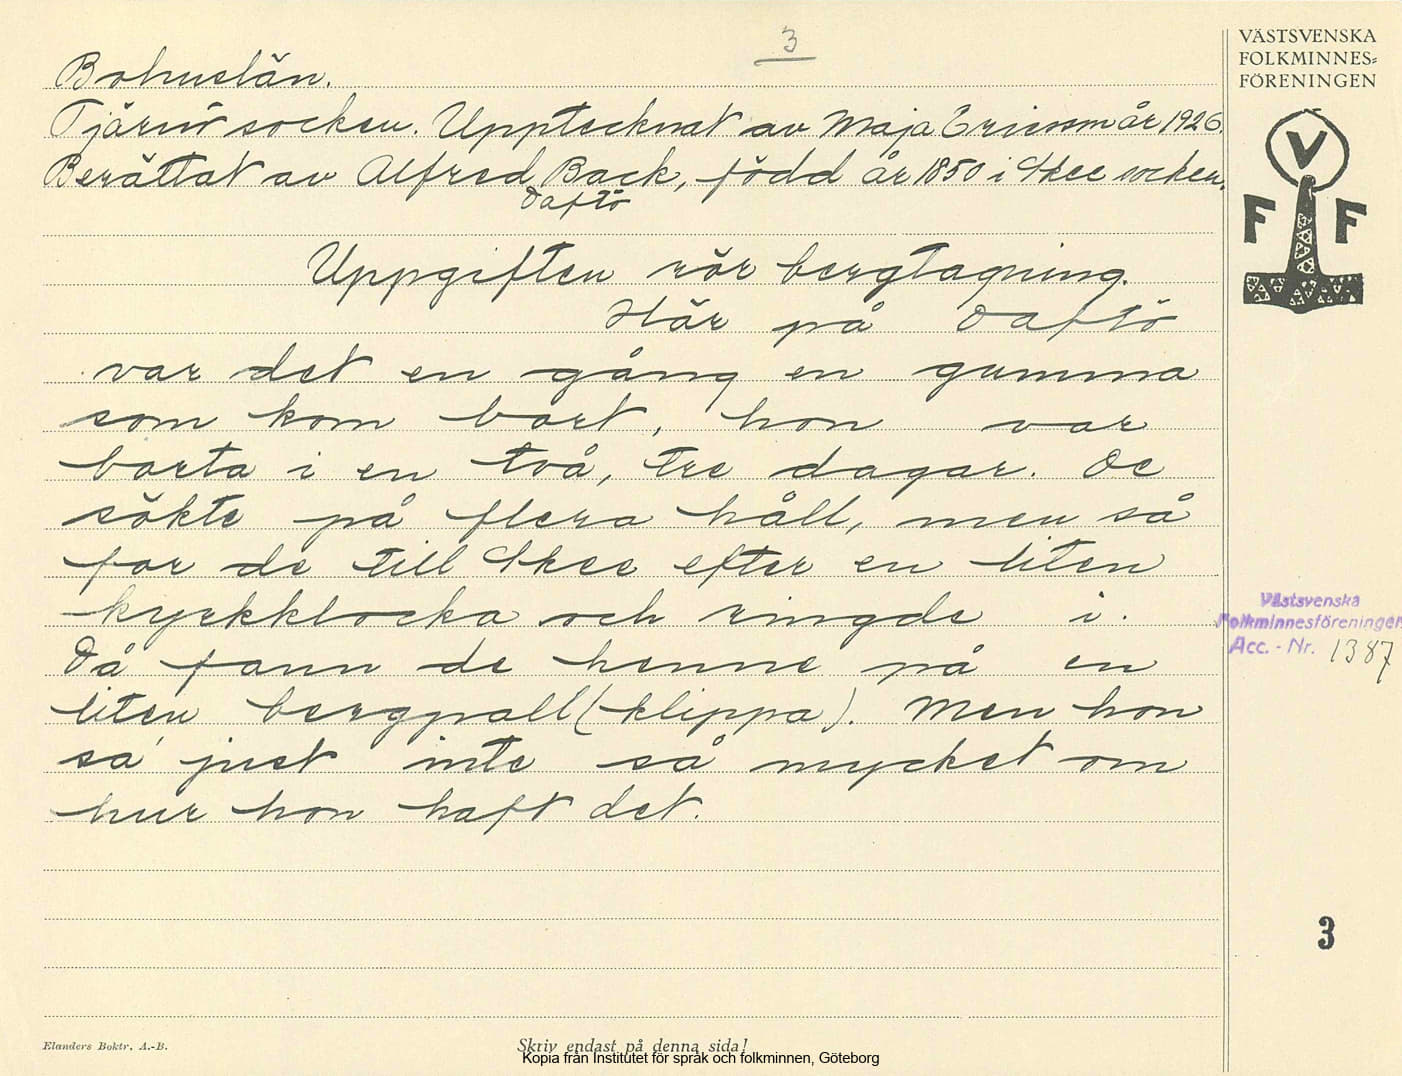 3
VÄSTSVENSKA
FOLKMINNES=
FÖRENINGEN
V
F F
Bohuslän.
Tjärnö socken. Upptecknat av Maja Ericsson år 1926.
Berättat av Alfred Back, född år 1850 i Skee socken.
Daftö
Uppgiften rör bergtagning.
Här på Daftö
var det en gång en gumma
som kom bort, hon var
borta i en två, tre dagar. De
sökte på flera håll, men så
for de till Skee efter en liten
kyrkklocka och ringde i.
Då fann de henne på en
liten bergpall (klippa). Men hon
sa' just inte så mycket om
hur hon haft det.
Västsvenska
Folkminnesföreningen
Acc. - Nr. 1387
3
Elanders Boktr. A.-B.
Skriv endast på denna sida!
Kopia från Institutet för språk och folkminnen, Göteborg